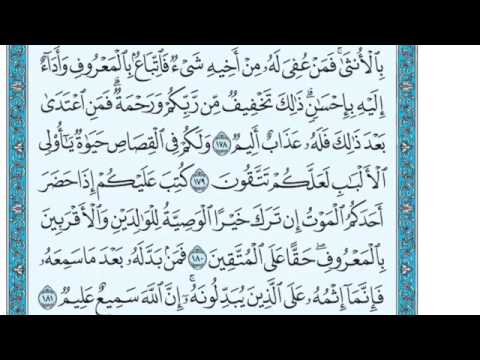 بِٱلۡأُنثَىٰۚ فَمَنۡ عُفِيَ لَهُۥ مِنۡ أَخِيهِ شَيۡءٞ فَٱتِّبَاعُۢ بِٱلۡمَعۡرُوفِ وَأَدَآءٌ
إِلَيۡهِ بِإِحۡسَٰنٖۗ ذَٰلِكَ تَخۡفِيفٞ مِّن رَّبِّكُمۡ وَرَحۡمَةٞۗ فَمَنِ ٱعۡتَدَىٰ
بَعۡدَ ذَٰلِكَ فَلَهُۥ عَذَابٌ أَلِيمٞ ١٧٨ وَلَكُمۡ فِي ٱلۡقِصَاصِ حَيَوٰةٞ يَٰٓأُوْلِي
ٱلۡأَلۡبَٰبِ لَعَلَّكُمۡ تَتَّقُونَ ١٧٩ كُتِبَ عَلَيۡكُمۡ إِذَا حَضَرَ
أَحَدَكُمُ ٱلۡمَوۡتُ إِن تَرَكَ خَيۡرًا ٱلۡوَصِيَّةُ لِلۡوَٰلِدَيۡنِ وَٱلۡأَقۡرَبِينَ
بِٱلۡمَعۡرُوفِۖ حَقًّا عَلَى ٱلۡمُتَّقِينَ ١٨٠ فَمَنۢ بَدَّلَهُۥ بَعۡدَ مَا سَمِعَهُۥ
فَإِنَّمَآ إِثۡمُهُۥ عَلَى ٱلَّذِينَ يُبَدِّلُونَهُۥٓۚ إِنَّ ٱللَّهَ سَمِيعٌ عَلِيمٞ ١٨١